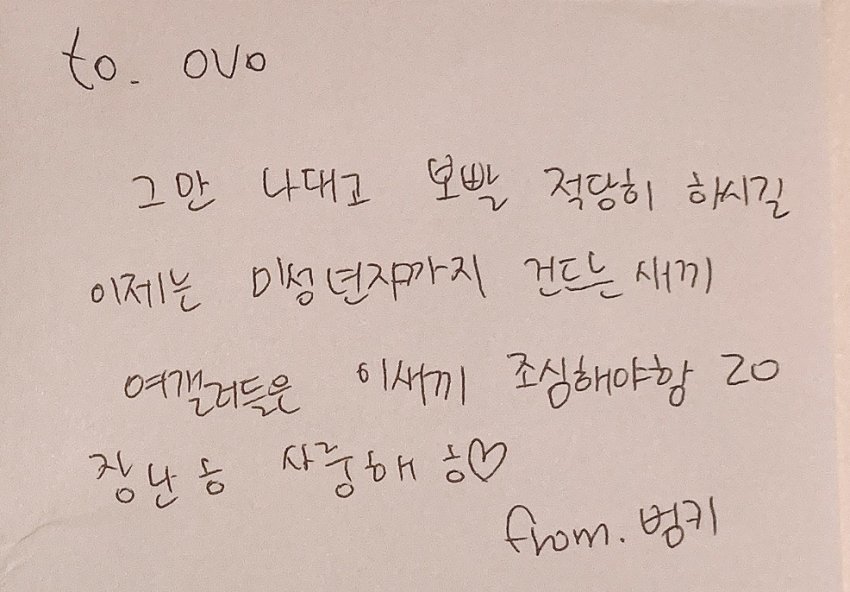 to. ovo
그만 나대고 보빨 적당히 하시길
이제는 미성년자까지 건드는 새끼
여갤러들은 이새끼 조심해야항 20
장난 송 사릉해 송♡
from. 벙키